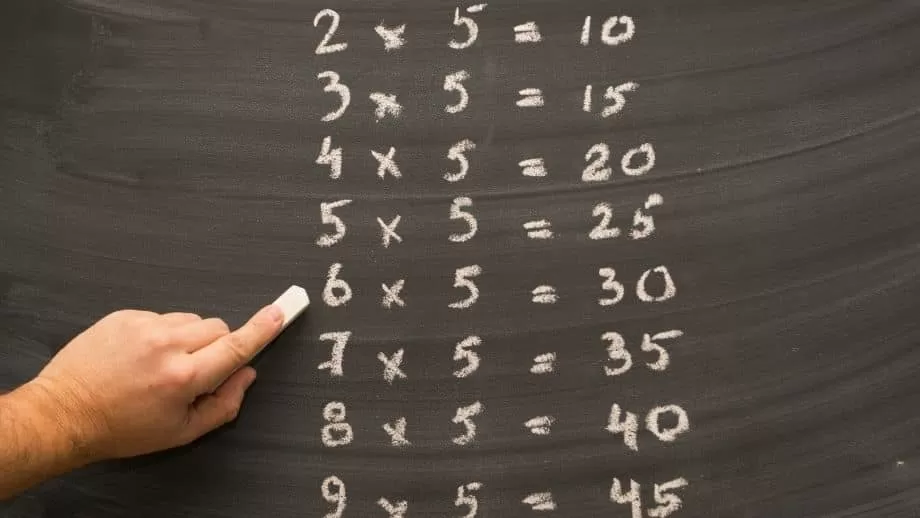 2 x 5 = 10
3 x 5 = 15
4 x 5 = 20
5 x 5 = 25
6 x 5 = 30
7 x 5 = 35
8 x 5 = 40
9 x 5 = 45